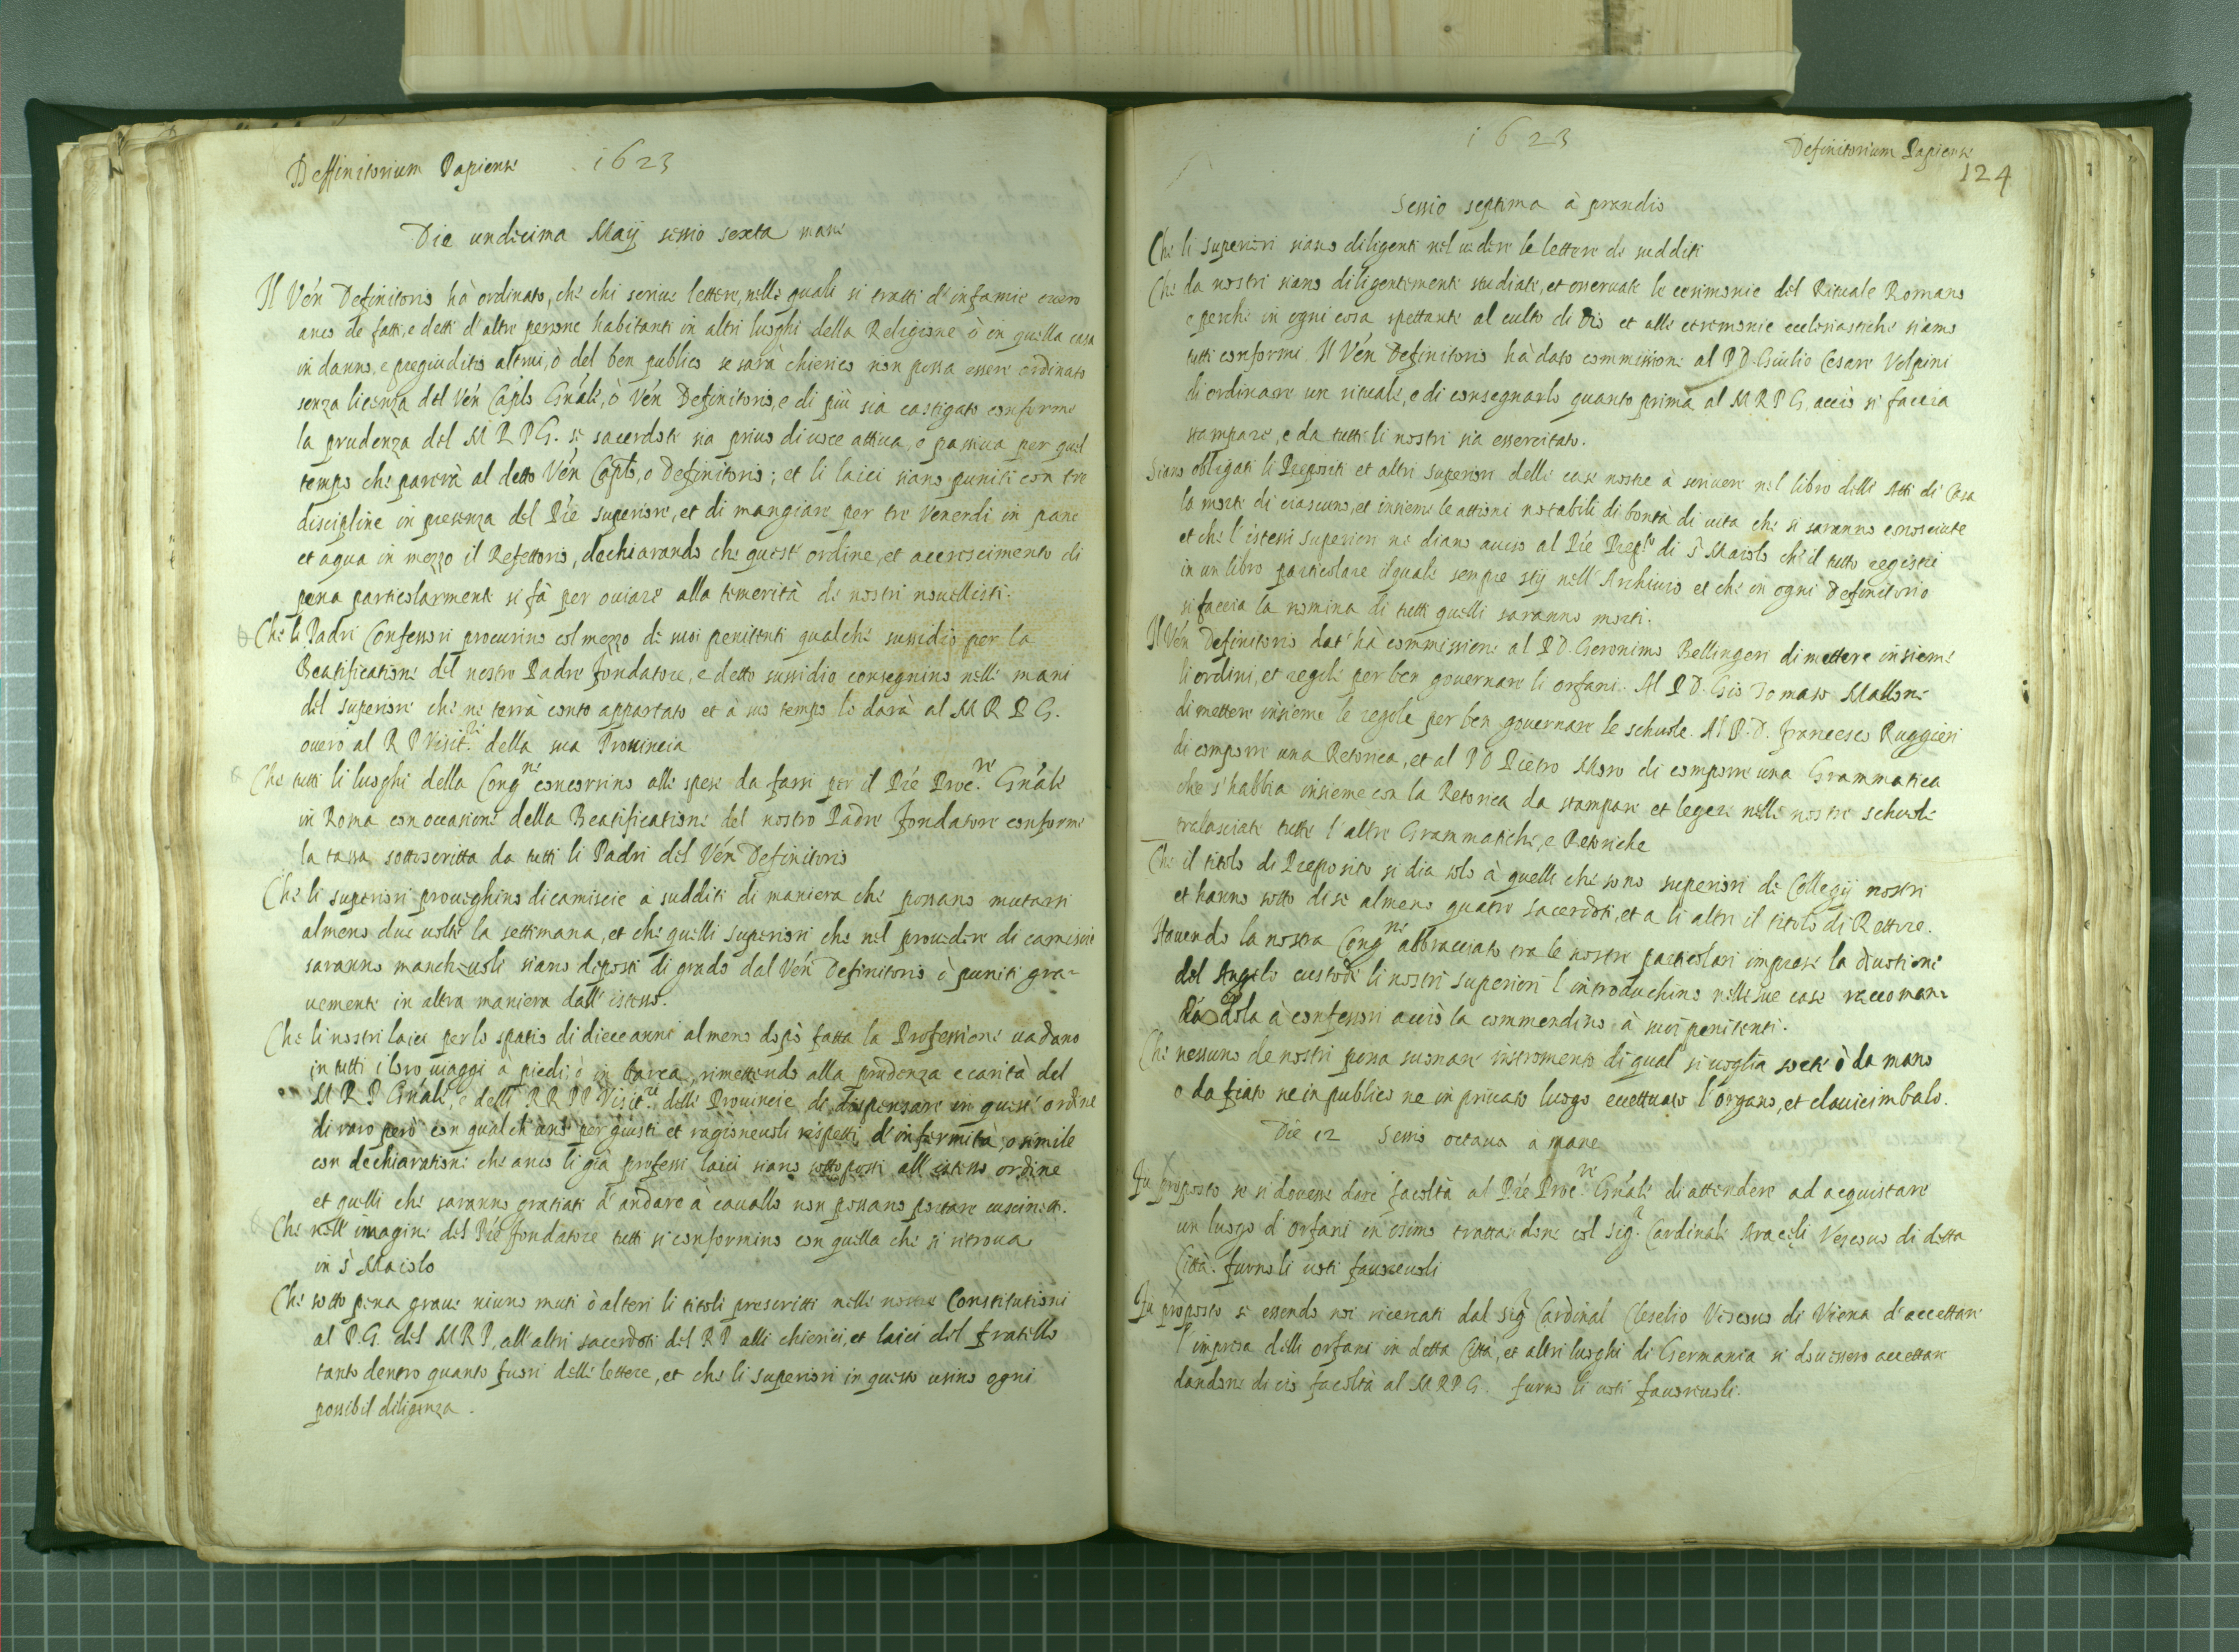 Deffinitorium Papiense 1623
Die undecima Maij sessio sexta mane
Il Ven Definitorio hà ordinato, che chi scrive lettere, nelle quali si tratti d'infamie overo
anco de fatti, e detti d'altre persone habitanti in altri luoghi della Religione ò in quella casa
in danno, e pregiuditio altrui, ò del ben publico se sarà chierico non possa essere ordinato
senza licenza del Ven Caplo Gnále, ò Ven Definitorio, e di più sia castigato conforme
la prudenza del M R P G. se sacerdote sia privo di voce attiva, e passiva per quel
tempo che parerà al detto Ven Caplo, o Definitorio; et li laici siano puniti con tre
discipline in presenza del Pre superiore, et di mangiare per tre Venerdi in pane
et aqua in mezzo il Refettorio, dechiarando che quest' ordine, et accrescimento di
pena particolarmente si fà per oviare alla temerità de nostri novellisti.
Che li Padri Confessori procurino col mezzo de suoi penitenti qualche sussidio per la
Beatificatione del nostro Padre fondatore, e detto sussidio consegnino nelle mani
del superiore che ne terrà conto appartato et à suo tempo lo darà al M R P G.
overo al R P Visit.re della sua Provincia
Che tutti li luoghi della Cong.ne concorrino alle spese da farsi per il Pre Proc.re Gnále
in Roma con occasione della Beatificatione del nostro Padre fondatore conforme
la tassa sottoscritta da tutti li Padri del Ven Definitorio
Che li superiori proveghino di camiscie a sudditi di maniera che possano mutarsi
almeno due volte la settimana, et che quelli superiori che nel provedere di camiscie
saranno manchevoli siano deposti di grado dal Ven Definitorio ò puniti gra-
vemente in altra maniera dall' istesso.
Che li nostri laici per lo spatio di diece anni almeno dopò fatta la Professione vadano
in tutti i loro viaggi à piedi, ò in barca, rimettendo alla prudenza e carità del
M R P Gnále, e delli RR PP Visit.ri delle Provincie di dispensare in quest' ordine
di raro però con qualch' uno per giusti et ragionevoli rispetti d'infermità, o simile
con dechiaratione che anco li già professi laici siano sottoposti all' istesso ordine
et quelli che saranno gratiati d'andare à cavallo non possano portare cuscinetti.
Che nell' imagine del Pre fondatore tutti si conformino con quella che si ritrova
in S Maiolo
Che sotto pena grave niuno muti ò alteri li titoli prescritti nelle nostre Constitutioni
al P. G. del M R P, all' altri sacerdoti del R P alli chierici, et laici del fratello
tanto dentro quanto fuori delle lettere, et che li superiori in questo usino ogni
possibil diligenza.
1623 Definitorium Papiense
124
Sessio septima à prandio
Che li superiori siano diligenti nel vedere le lettere de sudditi
Che da nostri siano diligentemente studiate, et osservate le cerimonie del Rituale Romano
e perche in ogni cosa spettante al culto di Dio et alle ceremonie ecclesiastiche siamo
tutti conformi Il Ven Definitorio hà dato commissione al P D. Giulio Cesare Volpini
di ordinare un rituale, e di consegnarlo quanto prima al M R P G, acciò si faccia
stampare, e da tutti li nostri sia essercitato.
Siano obligati li Prepositi et altri superiori delle case nostre à scrivere nel libro delli Atti di Casa
la morte di ciascuno, et insieme le attioni notabili di bontà di vita che si saranno conosciute
et che l'istessi superiori ne diano aviso al Pre Prep.to di S Maiolo che il tutto registri
in un libro particolare il quale sempre stij nell' Archivio et che in ogni Definitorio
si faccia la nomina di tutti quelli saranno morti.
Il Ven Definitorio dat' hà commissione al P D. Geronimo Bellingeri di mettere insieme
li ordini, et regole per ben governare li orfani. Al P D. Gio Tomaso Mallone
di mettere insieme le regole per ben governare le schuole. Al P. D. Francesco Ruggieri
di comporre una Retorica, et al P D Pietro Moro di comporre una Grammatica
che s'habbia insieme con la Retorica da stampare et legere nelle nostre schuole
tralasciate tutte l'altre Grammatiche, e Retoriche
Che il titolo di Preposito si dia solo à quelli che sono superiori de Collegij nostri
et hanno sotto di se almeno quatro sacerdoti, et a li altri il titolo di Rettore.
Havendo la nostra Cong.ne abbracciato tra le nostre particolari imprese la divotione
del Angelo custode li nostri superiori l'introduchino nelle sue case raccoman-
dandola à confessori acciò la commendino à suoi penitenti.
Che nessuno de nostri possa suonare instromento di qual si voglia sorte ò da mano
o da fiato ne in publico ne in privato luogo eccettuato l'organo, et clavicimbalo.
Die 12 Sessio octava a mane
Fu proposto se si dovesse dare facoltà al Pre Proc.re Gnále di attendere ad acquistare
un luogo d'orfani in Osimo trattandone col Sig.r Cardinale Araceli Vescovo di detta
Città. furno li voti favorevoli
Fu proposto se essendo noi ricercati dal Sig.r Cardinal Cleselio Vescovo di Viena d'accettare
l'impresa delli orfani in detta Città, et altri luoghi di Germania si dovessero accettare
dandone di ciò facoltà al M R P G. furno li voti favorevoli.